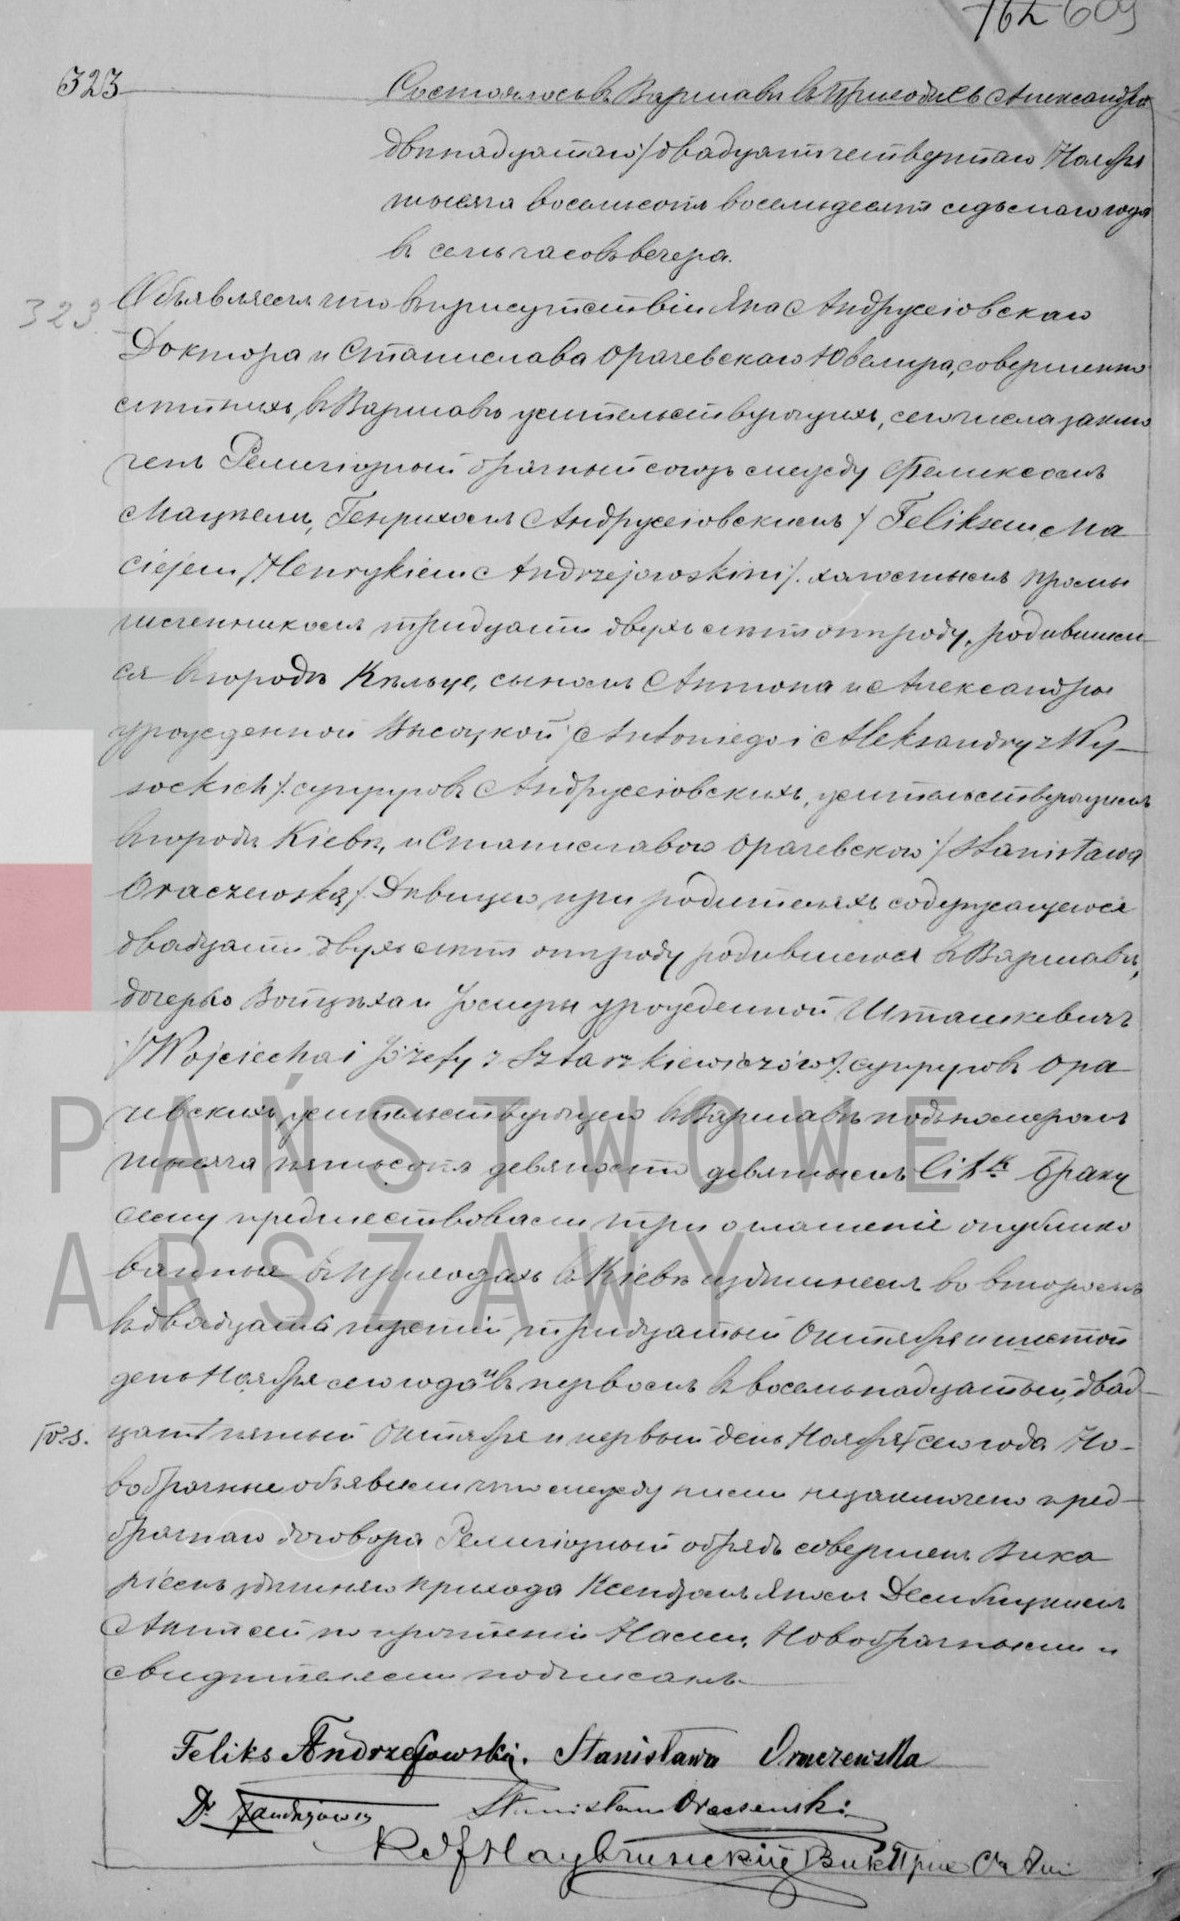 762 609
323
Состоялось въ Варшавѣ въ Приходѣ Св Александра
двѣнадцатаго / двадцать четвертаго Ноября
тысяча восемьсотъ восемьдесятъ седьмаго года
въ семь часовъ вечера.
323.
Объявляемъ что въ присутствіи Яна Андржеіовскаго
Доктора и Станислава Орачевскаго Ювелира, совершенно
лѣтнихъ, въ Варшавѣ жительствующихъ, сего числа заклю
ченъ Религіозный брачный союзъ между Феликсомъ
Мацѣемъ, Генрихомъ Андржеіовскимъ / Feliksem Ma
ciejem Henrykiem Andrzejowskim /. холостымъ промы
шленникомъ тридцати двухъ лѣтъ отъ роду, родившим
ся въ городѣ Кѣльце, сыномъ Антона и Александры
урожденной Высоцкой / Antoniego i Aleksandry z Wy-
sockich /. супруговъ Андржеіовскихъ, жительствующимъ
въ городѣ Кіевѣ, и Станиславою Орачевскою / Stanisławą
Oraczewską /. Дѣвицею при родителяхъ содержащеюся
двадцати двухъ лѣтъ отъ роду родившеюся въ Варшавѣ,
дочерью Войцѣха и Іозефы урожденной Шташкевичъ
/ Wojciecha i Józefy z Sztaszkiewiczów /. супруговъ Ора
чевскихъ, жительствующею въ Варшавѣ подъ номеромъ
тысяча пятьсотъ девяносто девятымъ lit. Браку
сему предшествовали три оглашенія опублико
ванныя въ приходахъ въ Кіевѣ и здѣшнемъ во второмъ
въ двадцать третій, тридцатый Октября и шестой
день Ноября сего года и въ первомъ въ восемьнадцатый, двад-
цать пятый Октября и первый день Ноября сего года Но-
вобрачные объявили что между ними незаключено пред-
брачнаго договора Религіозный обрядъ совершенъ Вика
ріемъ здѣшняго прихода Ксендзомъ Яномъ Дембицкимъ
Актъ сей по прочтеніи Нами, Новобрачными и
свидѣтелями подписанъ.
Feliks Andrzejowski. Stanisława Oraczewska
Dr JAndrzejowski Stanisław Oraczewski